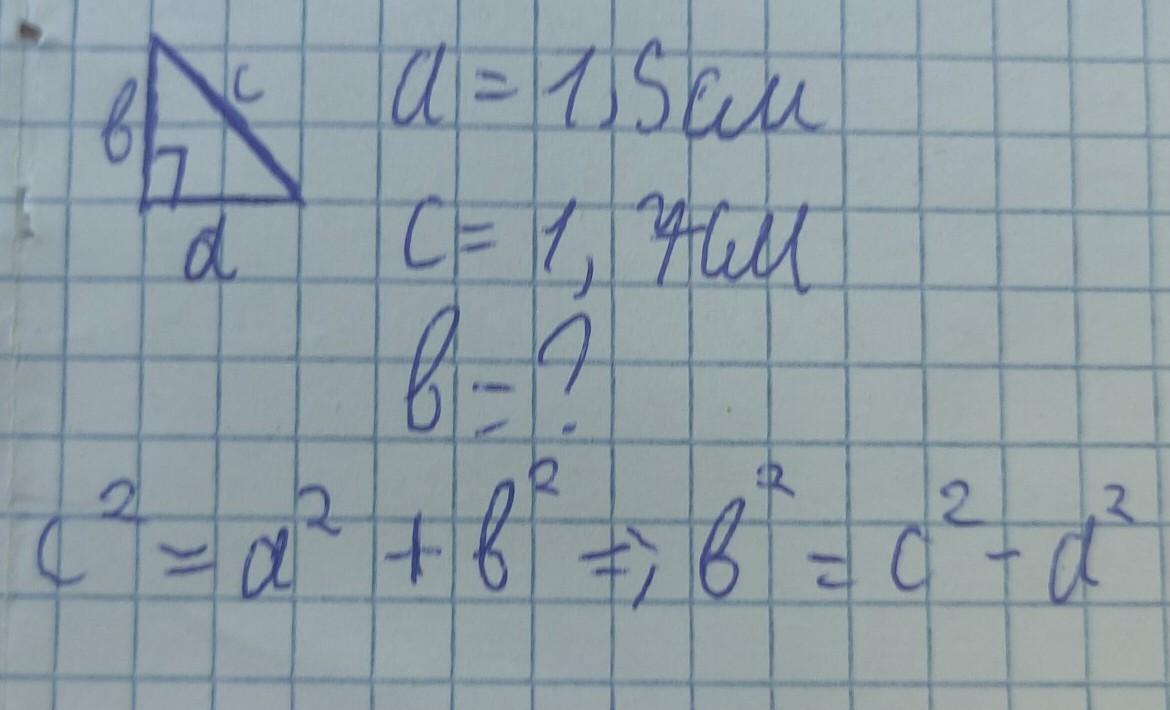 в c a
a = 1,5 см
c = 1, 7 см
в = ?
c² = a² + в² => в² = c² - a²